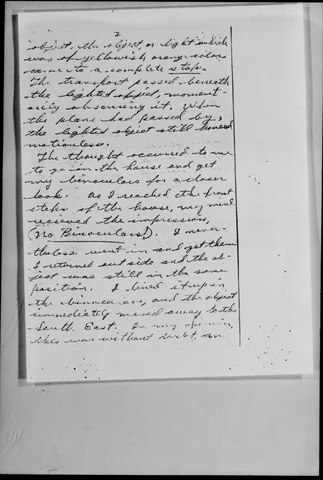 2
object, the object or light which
was of yellowish orange color
came to a complete stop.
The transport passed beneath
the lighted object, moment-
arily obscuring it. When
the plane had passed by,
the lighted object still hovered
motionless.
The thought occurred to me
to go in the house and get
my binoculars for a closer
look. As I reached the front
steps of the house, my mind
recieved the impression,
(No Binoculars!). I never-
theless went in and got them
I returned outside and the ob-
ject was still in the same
position. I lined it up in
the binoculars, and the object
immediately moved away to the
South East. In my opinion,
this was without doubt, an